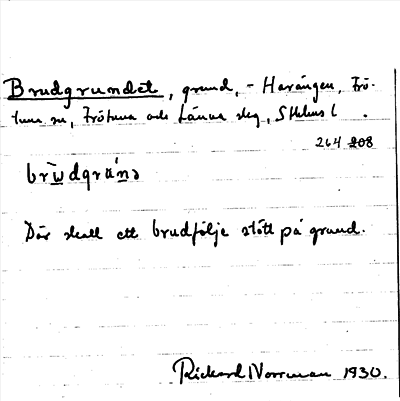 Brudgrundet, grund, - Harången, Frö-
tuna sn, Frötuna och Länna skg, Sthlms l.
264 208
Där skall ett brudfölje stött på grund.
Rickard Norrman 1930.